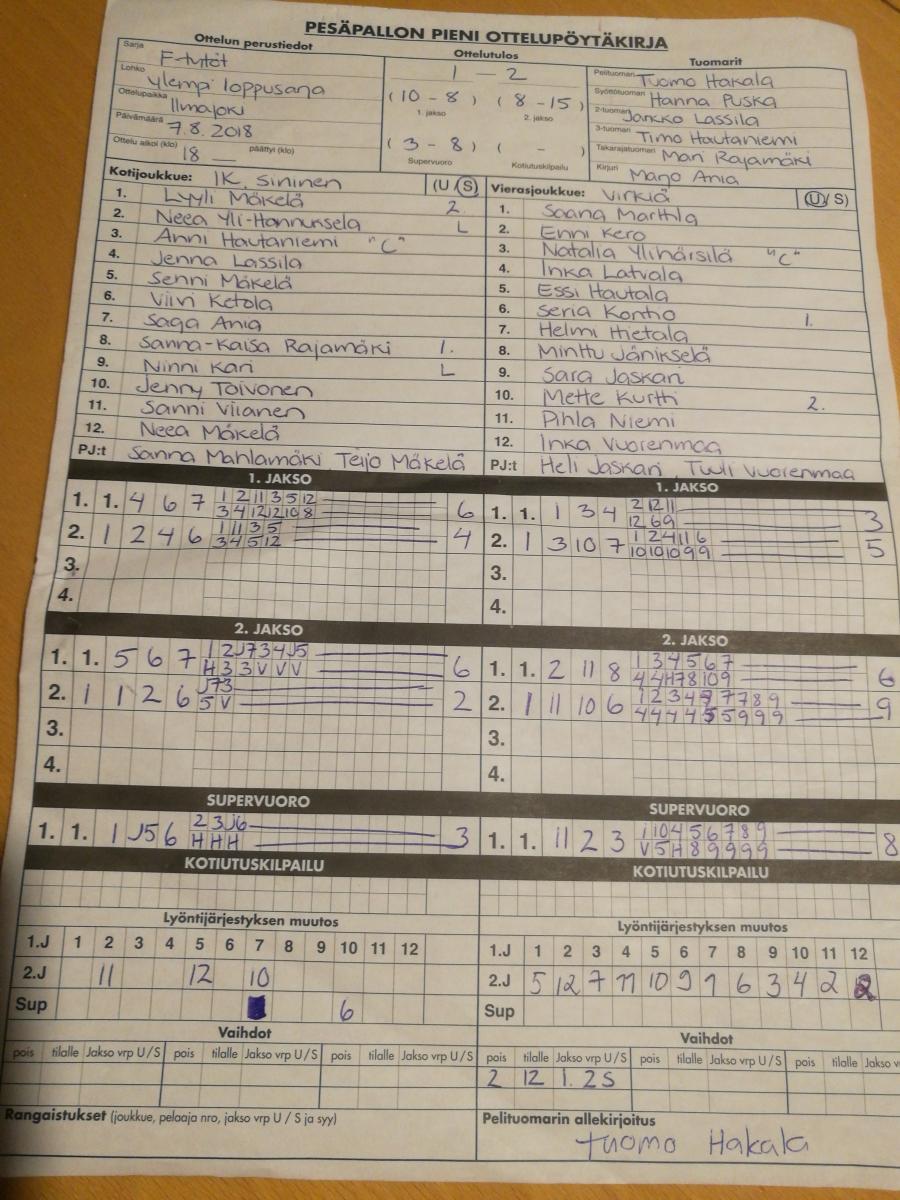 PESÄPALLON PIENI OTTELUPÖYTÄKIRJA
Ottelun perustiedot
Sarja F-tytöt
Lohko Ylempi loppusarja
Ottelupaikka Ilmajoki
Päivämäärä 7.8.2018
Ottelu alkoi (klo) 18 — päättyi (klo)
Ottelutulos
1 — 2
(10 - 8) (8 - 15)
1. jakso 2. jakso
(3 - 8) ( - )
Supervuoro Kotiutuskilpailu
Tuomarit
Pelituomari Tuomo Hakala
Syöttötuomari Hanna Puska
2-tuomari Jarkko Lassila
3-tuomari Timo Hautaniemi
Takarajatuomari Mari Rajamäki
Kirjuri Marjo Ania
Kotijoukkue: IK. Sininen (U S)
1. Lyyli Mäkelä 2.
2. Neea Yli-Hannuksela L
3. Anni Hautaniemi "C"
4. Jenna Lassila
5. Senni Mäkelä
6. Viivi Ketola
7. Saga Ania
8. Sanna-Kaisa Rajamäki 1.
9. Ninni Kari L
10. Jenny Toivonen
11. Sanni Viianen
12. Neea Mäkelä
PJ:t Sanna Mahlamäki Teijo Mäkelä
Vierasjoukkue: Virkiä (U/S)
1. Saana Marttila
2. Enni Kero
3. Natalia Ylihärsilä "C"
4. Inka Latvala
5. Essi Hautala
6. Seria Kontio 1.
7. Helmi Hietala
8. Minttu Jänikselä
9. Sara Jaskari
10. Mette Kurtti 2.
11. Pihla Niemi
12. Inka Vuorenmaa
PJ:t Heli Jaskari, Tuuli Vuorenmaa
1. JAKSO
1. 1. 4 6 7 1 2 11 3 5 12 6
3 4 12 12 10 8
2. 1 2 4 6 1 11 3 5 4
3 4 5 12
3.
4.
1. JAKSO
1. 1. 1 3 4 2 12 11 3
12 6 9
2. 1 3 10 7 1 2 4 11 6 5
10 10 10 9 9
3.
4.
2. JAKSO
1. 1. 5 6 7 1 2 J7 3 4 J5 6
H 3 3 V V V
2. 1 1 2 6 J7 3 2
5 V
3.
4.
2. JAKSO
1. 1. 2 11 8 1 3 4 5 6 7 6
4 4 H7 8 10 9
2. 1 11 10 6 1 2 3 4 7 7 7 8 9 9
4 4 4 4 5 5 9 9 9
3.
4.
SUPERVUORO
1. 1. 1 J5 6 2 3 J6 3
H H H
SUPERVUORO
1. 1. 11 2 3 1 10 4 5 6 7 8 9 8
V 5 H 8 9 9 9 9
KOTIUTUSKILPAILU
KOTIUTUSKILPAILU
Lyöntijärjestyksen muutos
1.J 1 2 3 4 5 6 7 8 9 10 11 12
2.J 11 12 10
Sup 6
Lyöntijärjestyksen muutos
1.J 1 2 3 4 5 6 7 8 9 10 11 12
2.J 5 12 7 11 10 9 1 6 3 4 2
Sup
Vaihdot
pois tilalle Jakso vrp U/S pois tilalle Jakso vrp U/S pois tilalle Jakso vrp U/S
Vaihdot
pois tilalle Jakso vrp U/S pois tilalle Jakso vrp U/S pois tilalle Jakso
2 12 1. 2S
Rangaistukset (joukkue, pelaaja nro, jakso vrp U / S ja syy)
Pelituomarin allekirjoitus
Tuomo Hakala